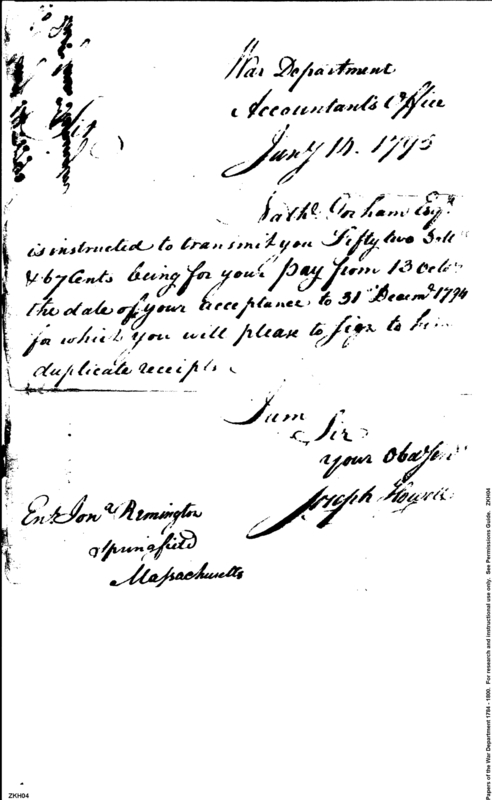 War Department
Accountant's Office
Jany 14. 1795
Sir
Nathl. Gorham Esqr.
is instructed to transmit you Fifty two Doll
& 67 Cents being for your pay from 13 Octor
the date of your acceptance to 31st Decemr 1794
for which you will please to sign to him
duplicate receipts
I am
Sir
your Obd Serv
Joseph Howell
Ens Jona Remington
Springfield
Massachusetts
Papers of the War Department 1784 - 1800. For research and instructional use only. See Permissions Guide. ZKH04
ZKH04